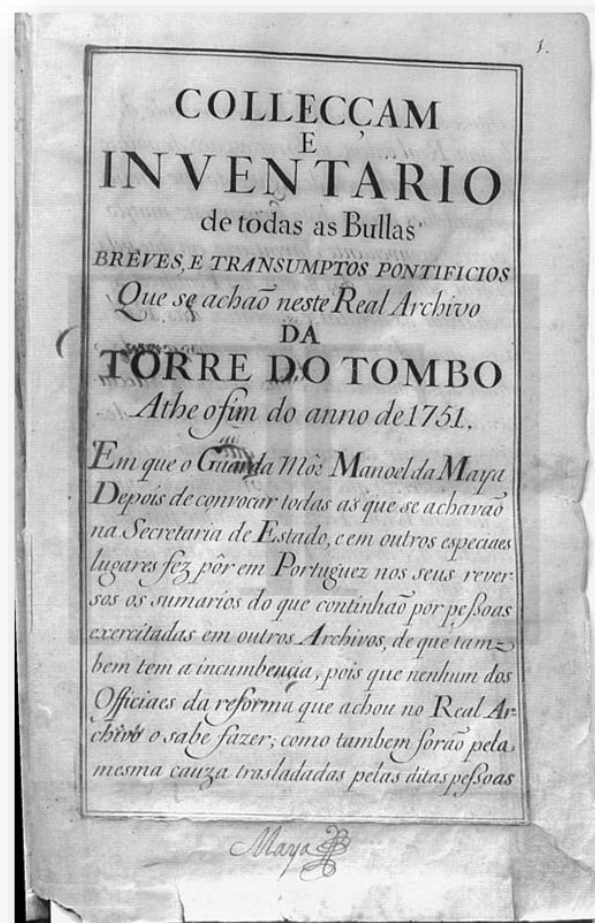 1.
COLLECÇAM
E
INVENTARIO
de todas as Bullas
BREVES, E TRANSUMPTOS PONTIFICIOS
Que se achaõ neste Real Archivo
DA
TORRE DO TOMBO
Athe o fim do anno de 1751.
Em que o Guarda Mór Manoel da Maya
Depois de convocar todas as que se achavaõ
na Secretaria de Estado, e em outros especiaes
lugares fez pôr em Portuguez nos seus rever-
sos os sumarios do que continhaõ por peſsoas
exercitadas em outros Archivos, de que tam-
bem tem a incumbencia, pois que nenhum dos
Officiaes da reforma que achou no Real Ar-
chivo o sabe fazer; como tambem foraõ pela
mesma cauza trasladadas pelas ditas peſsoas
Maya